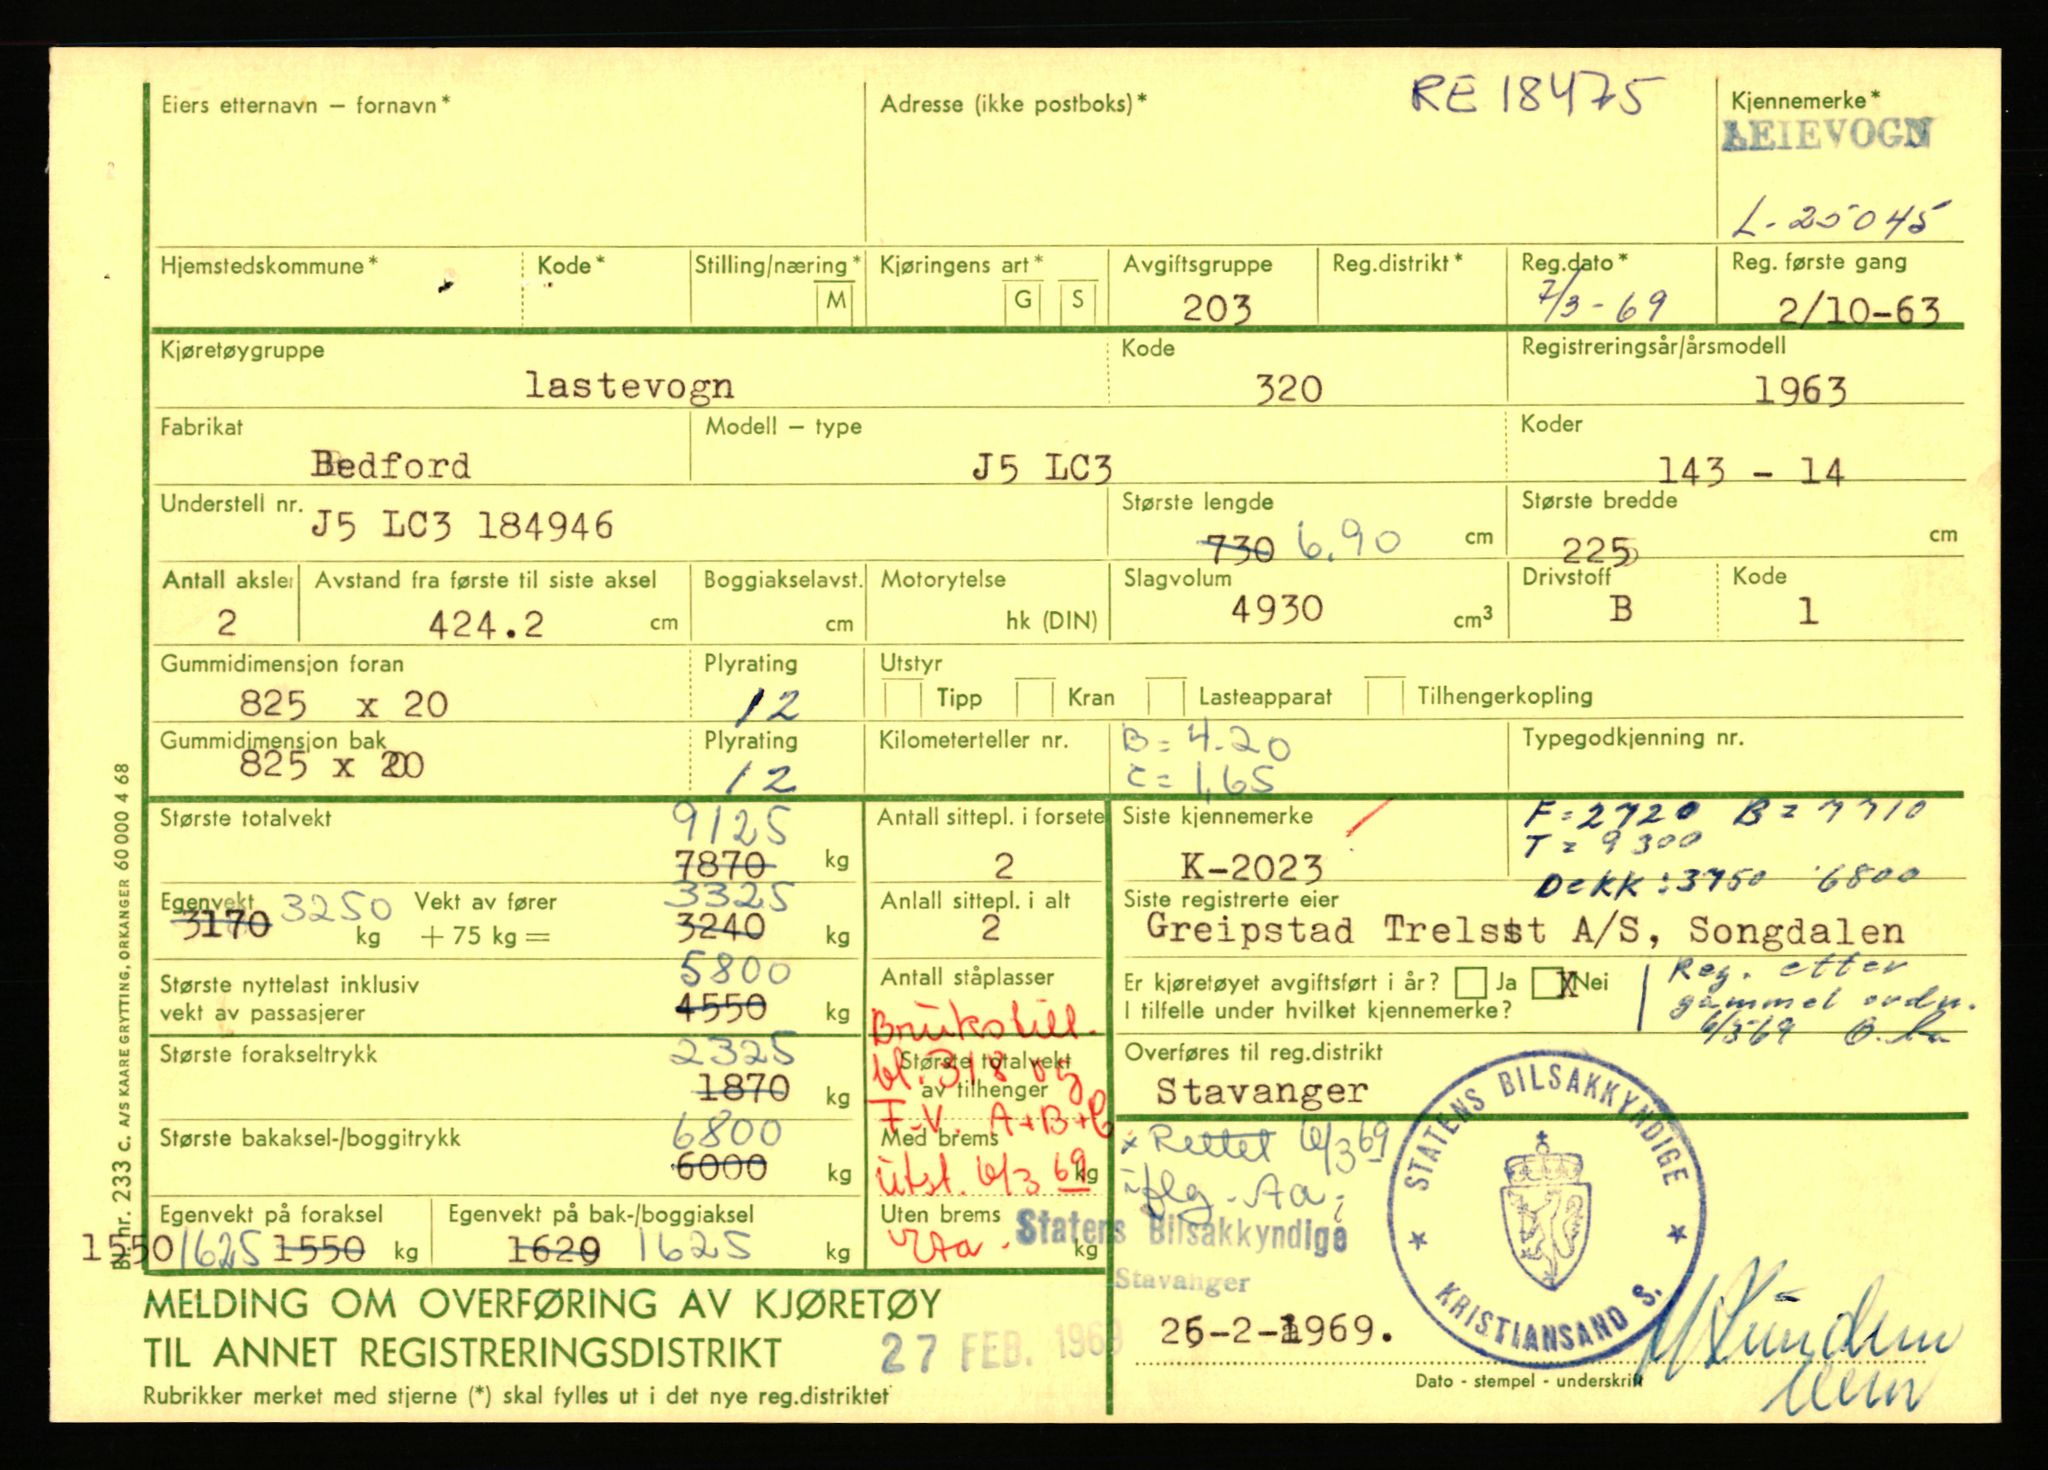 Eiers etternavn – fornavn*
Adresse (ikke postboks)*
RE 18475
Kjennemerke*
LEIEVOGN
L-25045
Hjemstedskommune*
Kode*
Stilling/næring*
M
Kjøringens art*
G
S
Avgiftsgruppe
203
Reg.distrikt*
Reg.dato*
7/3-69
Reg. første gang
2/10-63
Kjøretøygruppe
lastevogn
Kode
320
Registreringsår/årsmodell
1963
Fabrikat
Bedford
Modell – type
J5 LC3
Koder
143 - 14
Understell nr.
J5 LC3 184946
Største lengde
730 6.90 cm
Største bredde
225 cm
Antall aksler
2
Avstand fra første til siste aksel
424.2 cm
Boggiakselavst.
cm
Motorytelse
hk (DIN)
Slagvolum
4930 cm³
Drivstoff
B
Kode
1
Gummidimensjon foran
825 x 20
Plyrating
12
Utstyr
Tipp
Kran
Lasteapparat
Tilhengerkopling
Gummidimensjon bak
825 x 20
Plyrating
12
Kilometerteller nr.
B = 4.20
C = 1,65
Typegodkjenning nr.
Største totalvekt
9125
7870 kg
Antall sittepl. i forsete
2
Siste kjennemerke
K-2023
F = 2720 B = 7710
T = 9300
Dekk: 3750 6800
Egenvekt
3170 3250 kg
Vekt av fører
+ 75 kg =
3325
3240 kg
Antall sittepl. i alt
2
Siste registrerte eier
Greipstad Trelast A/S, Songdalen
Største nyttelast inklusiv
vekt av passasjerer
5800
4550 kg
Antall ståplasser
Er kjøretøyet avgiftsført i år? Ja X Nei
I tilfelle under hvilket kjennemerke?
Reg. etter
gammel ordn.
6/3-69
Største forakseltrykk
2325
1870 kg
Brukstill.
bl. 318 og
F-V. A+B+C
utst. 6/3 69
Aa.
Største totalvekt
av tilhenger
Med brems
kg
Uten brems
kg
Overføres til reg.distrikt
Stavanger
Største bakaksel-/boggitrykk
6800
6000 kg
x Rettet 6/3 69
iflg. Aa.
Egenvekt på foraksel
1550 1625 1550 kg
Egenvekt på bak-/boggiaksel
1620 1625 kg
Statens Bilsakkyndige
Stavanger
27 FEB. 1969
STATENS BILSAKKYNDIGE
KRISTIANSAND S.
26-2-1969.
Dato - stempel - underskrift
MELDING OM OVERFØRING AV KJØRETØY
TIL ANNET REGISTRERINGSDISTRIKT
Rubrikker merket med stjerne (*) skal fylles ut i det nye reg.distriktet
Bl. nr. 233 C. A/S KAARE GRYTTING, ORKANGER 60000 4 68